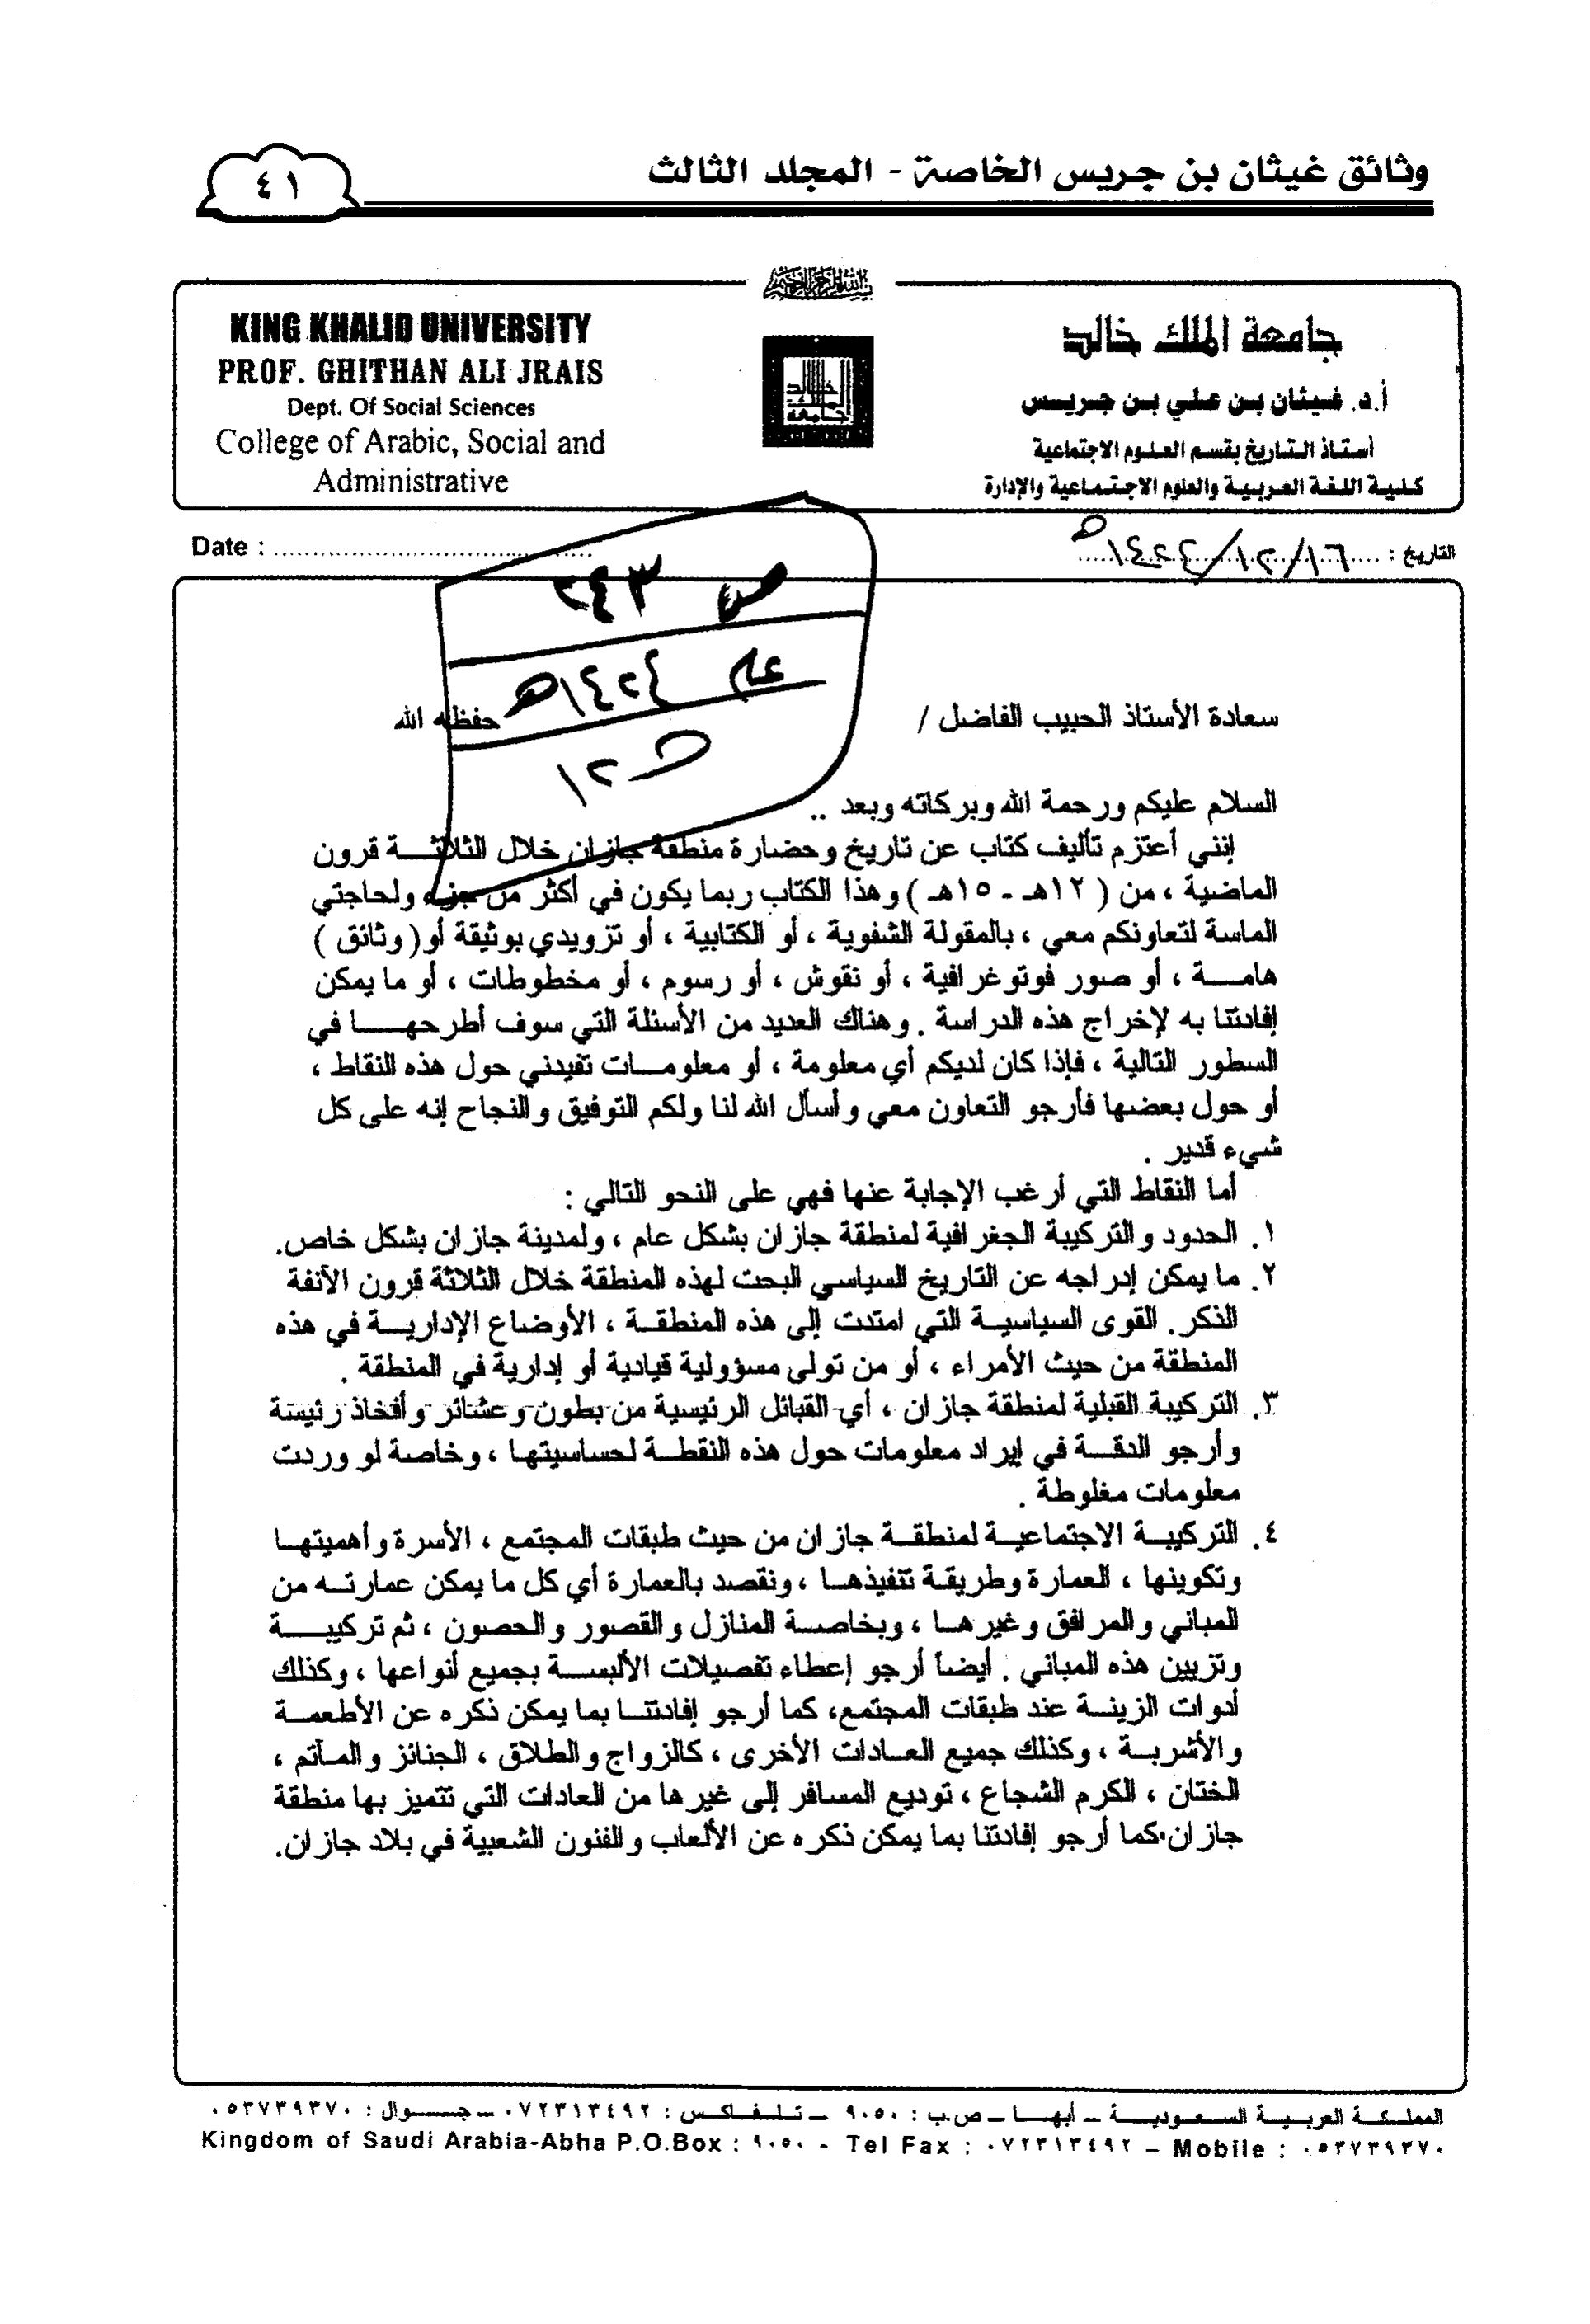 وثائق غيثان بن جريس الخاصة - المجلد الثالث
٤١
جامعة الملك خالد
أ.د. غيثان بن علي بن جريس
أستاذ التاريخ بقسم العلوم الاجتماعية
كلية اللغة العربية والعلوم الاجتماعية والإدارة
KING KHALID UNIVERSITY
PROF. GHITHAN ALI JRAIS
Dept. Of Social Sciences
College of Arabic, Social and
Administrative
التاريخ : ١٦/١٢/١٤٢٤هـ
Date :
ص ٢٤٣
عام ١٤٢٤هـ
سعادة الأستاذ الحبيب الفاضل / حفظه الله
السلام عليكم ورحمة الله وبركاته وبعد ..
إنني أعتزم تأليف كتاب عن تاريخ وحضارة منطقة جازان خلال الثلاثة قرون
الماضية ، من ( ١٢هـ - ١٥هـ ) وهذا الكتاب ربما يكون في أكثر من جزء ولحاجتي
الماسة لتعاونكم معي ، بالمقولة الشفوية ، أو الكتابية ، أو تزويدي بوثيقة أو( وثائق )
هامة ، أو صور فوتوغرافية ، أو نقوش ، أو رسوم ، أو مخطوطات ، أو ما يمكن
إفادتنا به لإخراج هذه الدراسة . وهناك العديد من الأسئلة التي سوف أطرحها في
السطور التالية ، فإذا كان لديكم أي معلومة ، أو معلومات تفيدني حول هذه النقاط ،
أو حول بعضها فأرجو التعاون معي وأسأل الله لنا ولكم التوفيق والنجاح إنه على كل
شيء قدير .
أما النقاط التي أرغب الإجابة عنها فهي على النحو التالي :
١. الحدود والتركيبة الجغرافية لمنطقة جازان بشكل عام ، ولمدينة جازان بشكل خاص.
٢. ما يمكن إدراجه عن التاريخ السياسي البحت لهذه المنطقة خلال الثلاثة قرون الآنفة
الذكر. القوى السياسية التي امتدت إلى هذه المنطقة ، الأوضاع الإدارية في هذه
المنطقة من حيث الأمراء ، أو من تولى مسؤولية قيادية أو إدارية في المنطقة .
٣. التركيبة القبلية لمنطقة جازان ، أي القبائل الرئيسية من بطون وعشائر وأفخاذ رئيسة
وأرجو الدقة في إيراد معلومات حول هذه النقطة لحساسيتها ، وخاصة لو وردت
معلومات مغلوطة .
٤. التركيبة الاجتماعية لمنطقة جازان من حيث طبقات المجتمع ، الأسرة وأهميتها
وتكوينها ، العمارة وطريقة تنفيذها ، ونقصد بالعمارة أي كل ما يمكن عمارته من
المباني والمرافق وغيرها ، وبخاصة المنازل والقصور والحصون ، ثم تركيبة
وتزيين هذه المباني . أيضاً أرجو إعطاء تفصيلات الألبسة بجميع أنواعها ، وكذلك
أدوات الزينة عند طبقات المجتمع، كما أرجو إفادتنا بما يمكن ذكره عن الأطعمة
والأشربة ، وكذلك جميع العادات الأخرى ، كالزواج والطلاق ، الجنائز والمآتم ،
الختان ، الكرم الشجاع ، توديع المسافر إلى غيرها من العادات التي تتميز بها منطقة
جازان.كما أرجو إفادتنا بما يمكن ذكره عن الألعاب والفنون الشعبية في بلاد جازان.
المملكة العربية السعودية – أبها – ص.ب : ٩٠٥٠ – تلفاكس : ٠٧٢٣١٣٤٩٢ – جوال : ٠٥٣٧٣٩٣٧٠
Kingdom of Saudi Arabia-Abha P.O.Box : ٩٠٥٠ - Tel Fax : ٠٧٢٣١٣٤٩٢ – Mobile : ٠٥٣٧٣٩٣٧٠